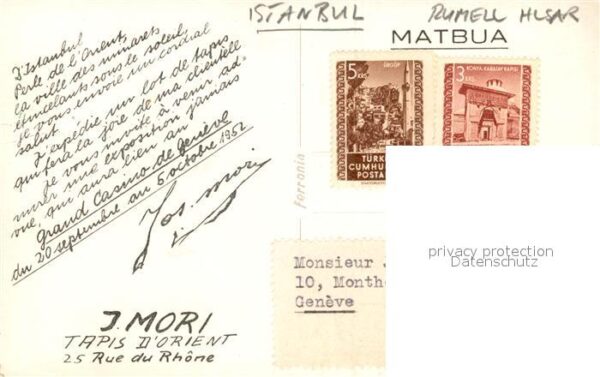 ISTANBUL
RUMELL HISAR
MATBUA
D'Istanbul
Perle de l'Orient,
la ville des minarets
étincelants sous le soleil,
je vous envoie un cordial
salut !
J'expédie un lot de tapis
qui fera la joie de ma clientèle
Je vous invite à venir ad-
mirer une exposition jamais
vue, qui aura lieu au
grand Casino de Genève
du 20 septembre au 5 octobre 1952
Jos. Mori
J. MORI
TAPIS D'ORIENT
25 Rue du Rhône
Ferrania
5 KRŞ.
ÜRGÜP
TÜRK
CUMHU
POSTA
3 KRŞ.
KONYA-KARATAY KAPISI
privacy protection
Datenschutz
Monsieur J
10, Month
Genève